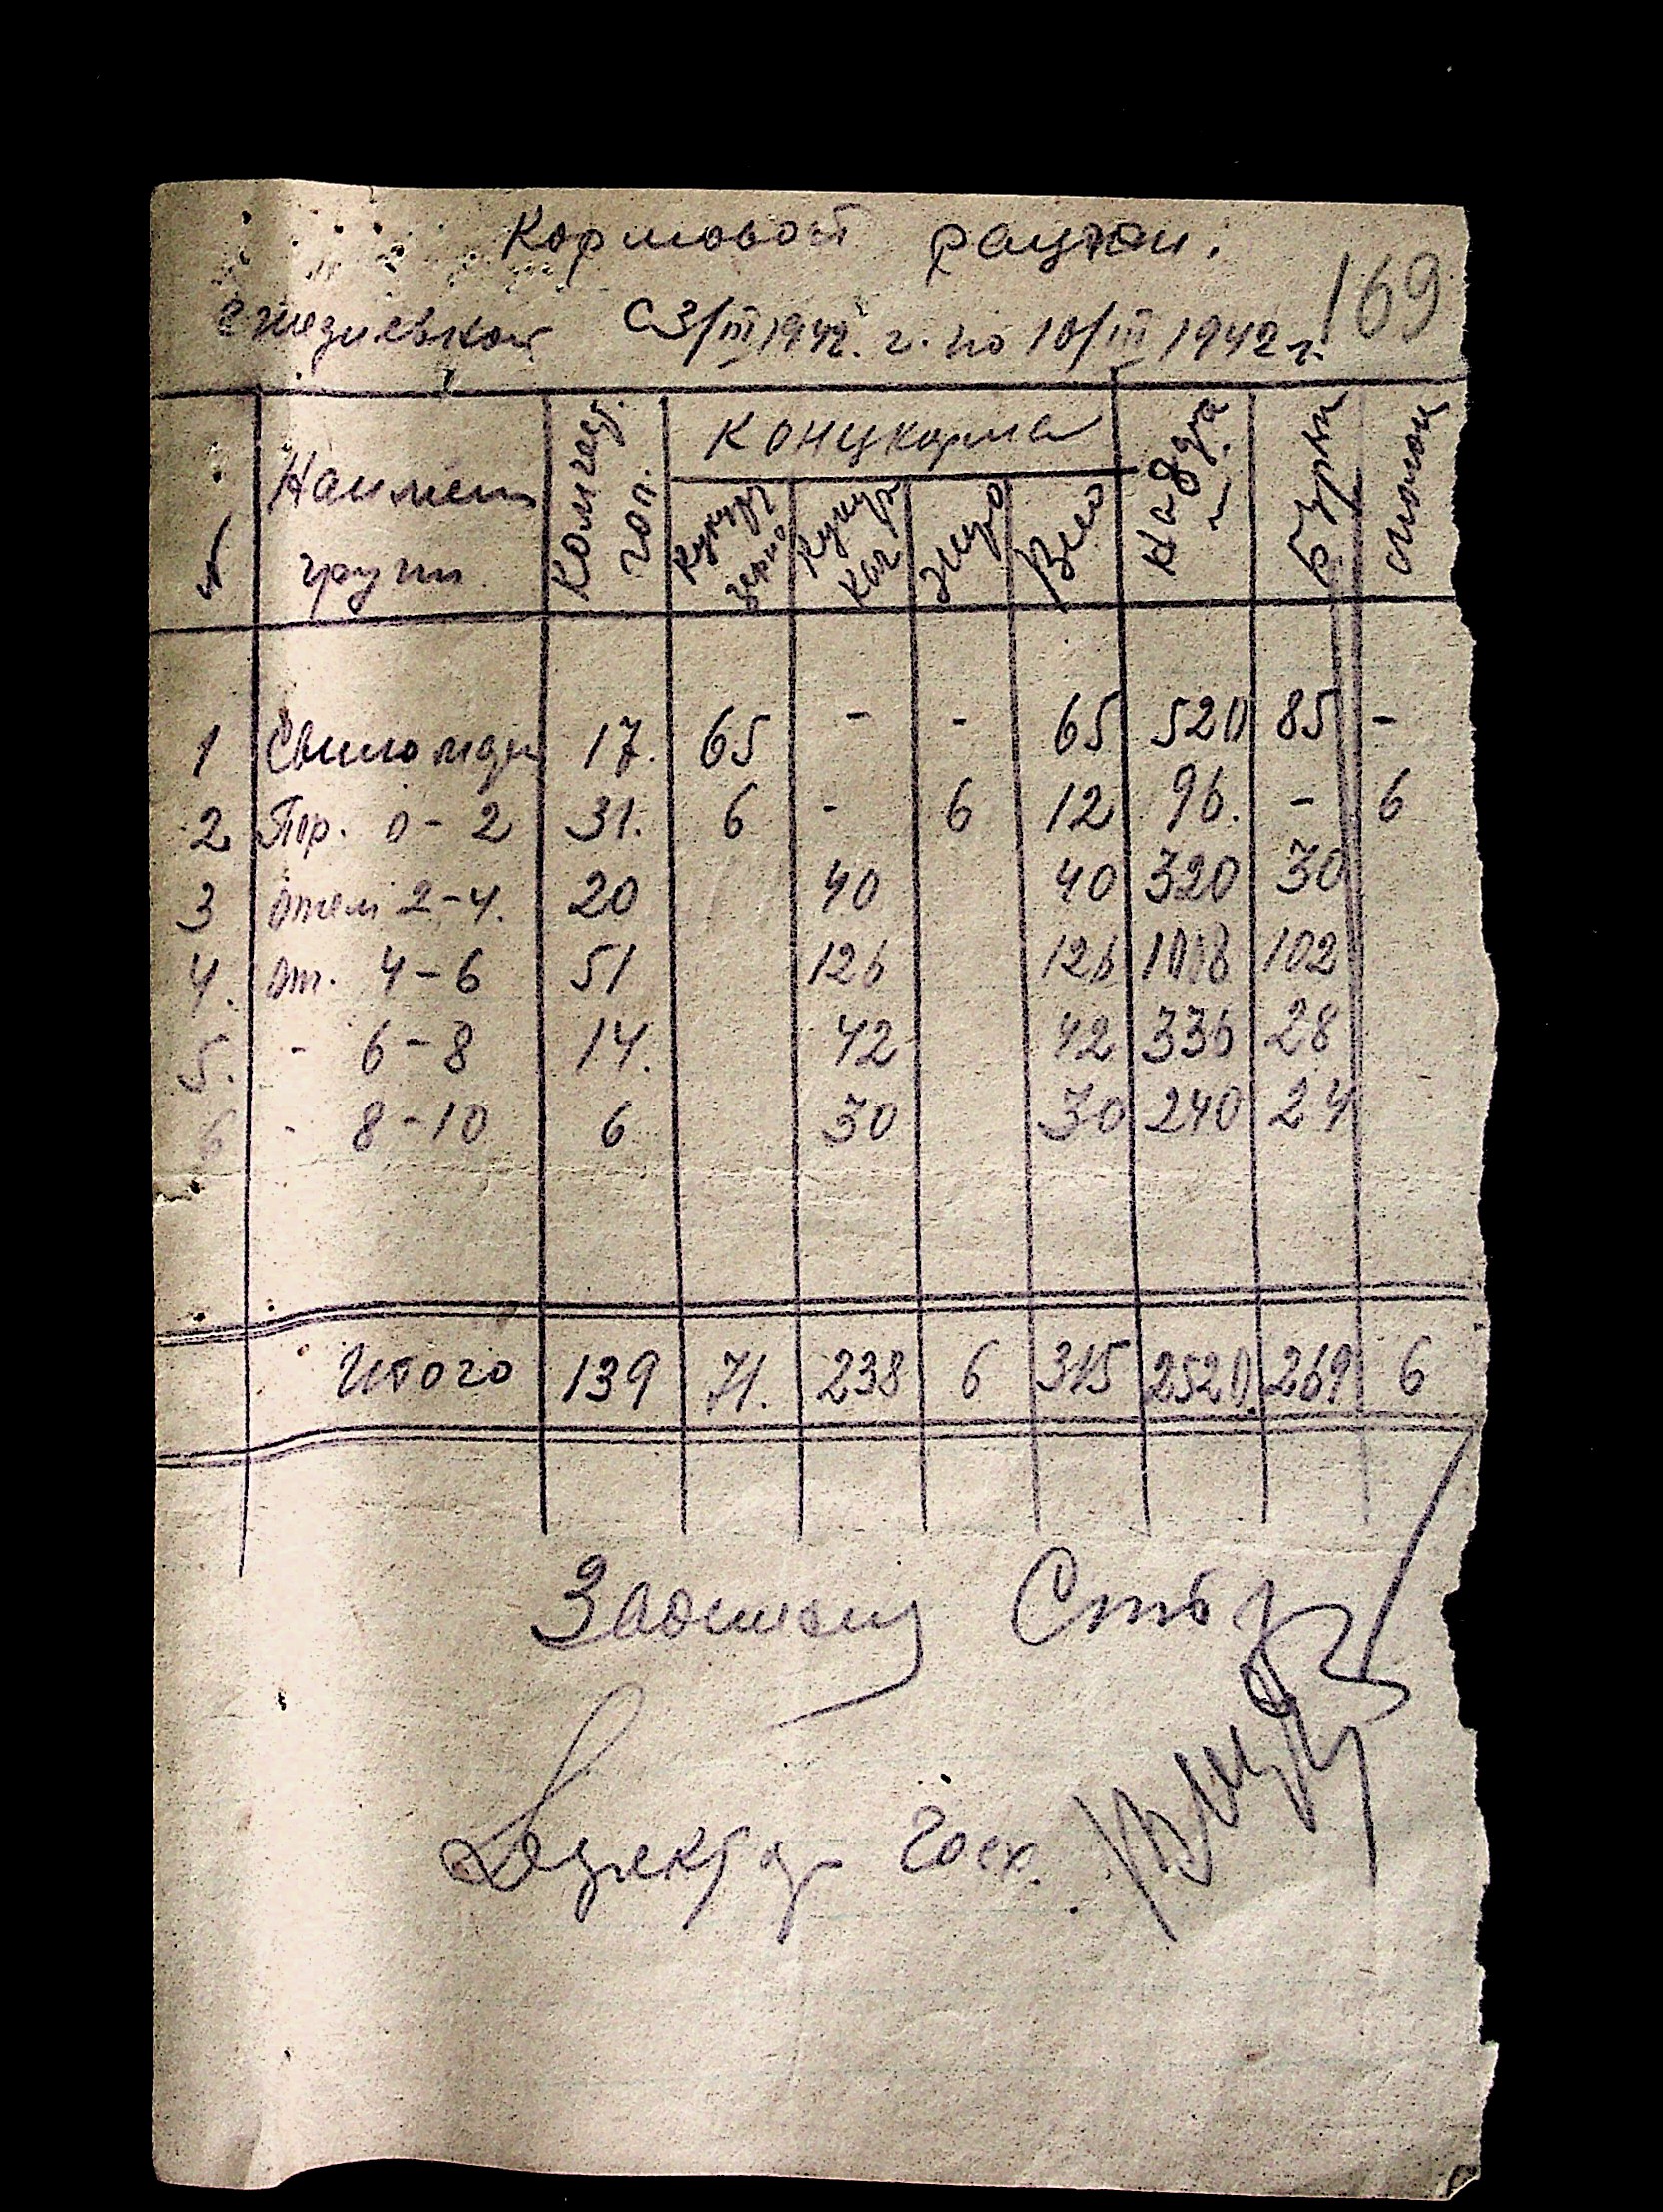 Кормовой рацион.
169
ежедневной С 3/III 1942. г. по 10/III 1942 г.
№ Наимен групп Колич гол. Концкорма Кукур зерно Кукур кач Всего на 8 дн. Бурак молок
1 Свиномат 17. 65 - - 65 520 85 -
2 Пор. 0-2 31. 6 - 6 12 96. - 6
3 отъем 2-4. 20 40 40 320 30
4. от. 4-6 51 126 126 1008 102
5. - 6-8 14. 42 42 336 28
6 - 8-10 6 30 30 240 24
Итого 139 71. 238 6 315 2520. 269 6
Директор госх.